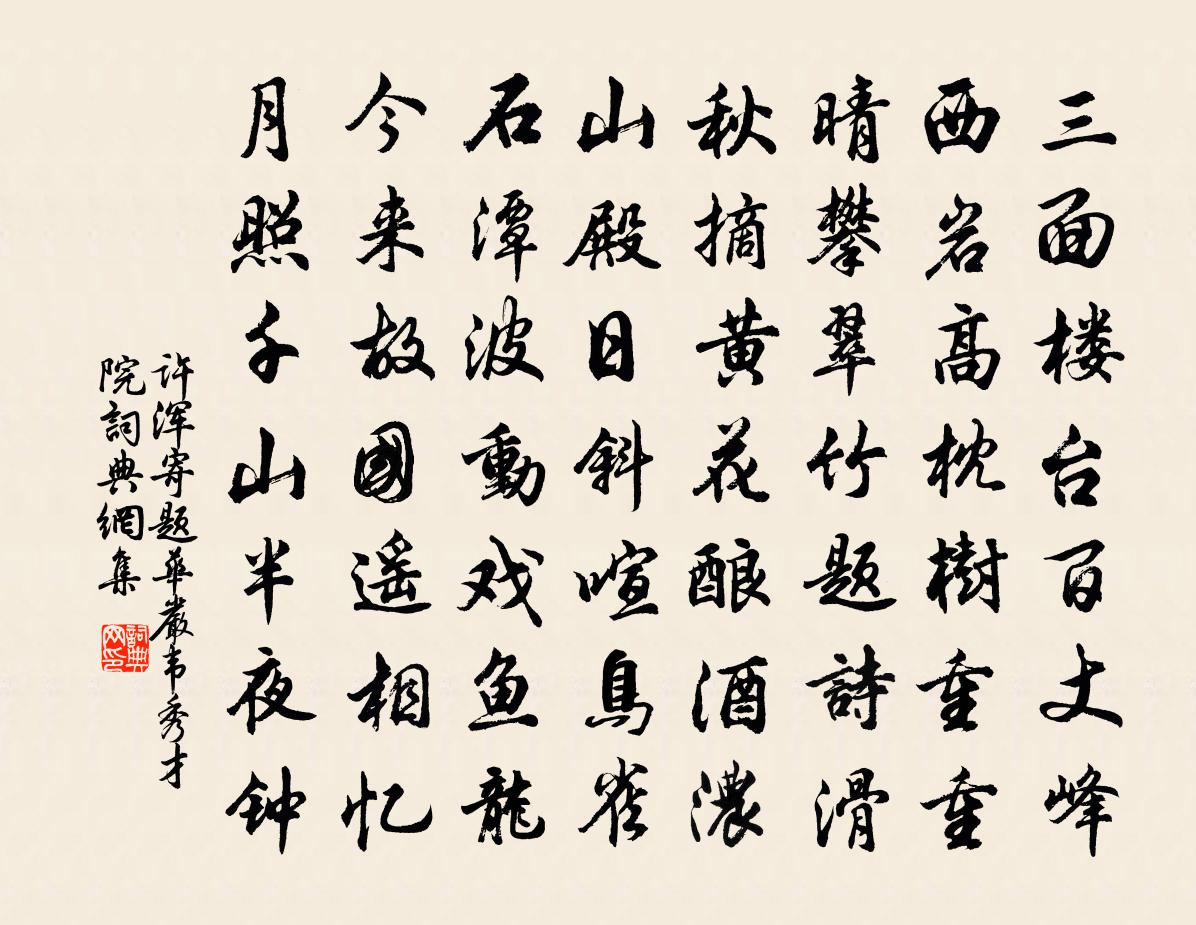 三面楼台百丈峰
西岩高枕樹重重
晴攀翠竹題詩滑
秋摘黄花酿酒濃
山殿日斜喧鳥雀
石潭波動戏鱼龍
今来故國遥相忆
月照千山半夜钟
许浑寄题華嚴韦秀才
院詞典網集
詞典网印